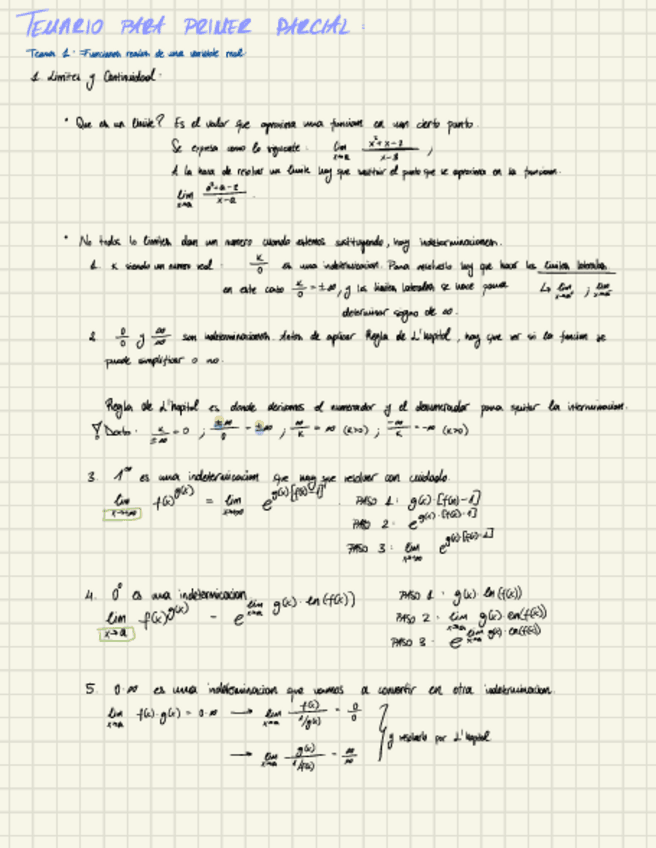 TEMARIO PARA PRIMER PARCIAL:
Tema 1: Funciones reales de una variable real
1. Limites y Continuidad.
• Que es un limite? Es el valor que aproxima una funcion en un cierto punto.
Se expresa como lo siguiente: lim x→a
A la hora de resolver un limite hay que sustituir el punto que se aproxima en la funcion.
lim x→a
• No todos lo limites dan un numero cuando estemos sustituyendo, hay indeterminaciones.
1. K siendo un numero real: K/0 es una indeterminacion. Para resolverlo hay que hacer los limites laterales
en este caso K/0 = ±∞, y los limites laterales se hace para
determinar signo de ∞.
2. 0/0 y ∞/∞ son indeterminaciones. Antes de aplicar Regla de L'hopital, hay que ver si la funcion se
puede simplificar o no.
Regla de L'hopital es donde derivamos el numerador y el denumerador para quitar la interminacion.
! Dato: K/±∞ = 0 ; ±∞/0 = ±∞ ; ∞/K = ∞ (K>0) ; -∞/K = -∞ (K>0)
3. 1^∞ es una indeterminacion que hay que resolver con cuidado.
lim x→∞ f(x)^g(x) = lim x→∞ e^g(x)·[f(x)-1]
PASO 1: g(x)·[f(x)-1]
PASO 2: e^g(x)·[f(x)-1]
PASO 3: lim x→∞ e^g(x)·[f(x)-1]
4. 0^0 es una indeterminacion
lim x→a f(x)^g(x) = e^lim x→a g(x)·ln(f(x))
PASO 1: g(x)·ln(f(x))
PASO 2: lim x→a g(x)·ln(f(x))
PASO 3: e^lim x→a g(x)·ln(f(x))
5. 0·∞ es una indeterminacion que vamos a convertir en otra indeterminacion.
lim x→a f(x)·g(x) = 0·∞ → lim x→a f(x)/1/g(x) = 0/0
→ lim x→a g(x)/1/f(x) = ∞/∞
y resolverlo por L'hopital